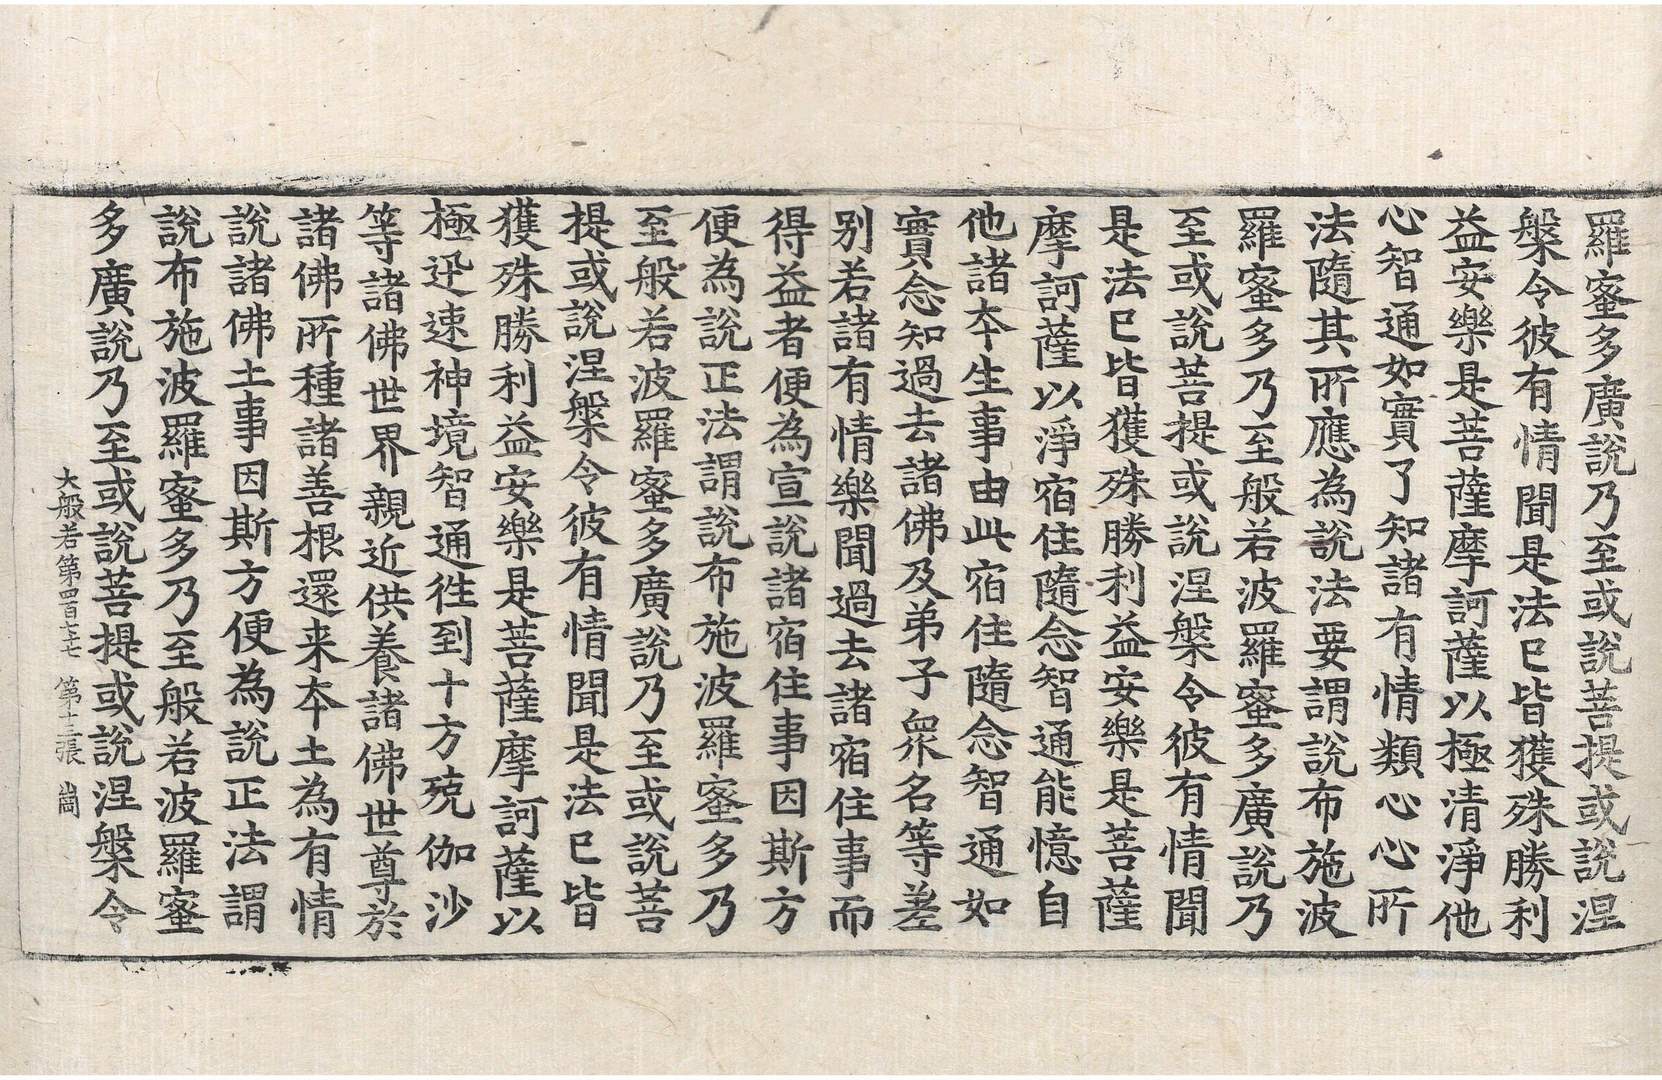 羅蜜多廣說乃至或說菩提或說涅
槃令彼有情聞是法已皆獲殊勝利
益安樂是菩薩摩訶薩以極清淨他
心智通如實了知諸有情類心心所
法隨其所應為說法要謂說布施波
羅蜜多乃至般若波羅蜜多廣說乃
至或說菩提或說涅槃令彼有情聞
是法已皆獲殊勝利益安樂是菩薩
摩訶薩以淨宿住隨念智通能憶自
他諸夲生事由此宿住隨念智通如
實念知過去諸佛及弟子眾名等差
別若諸有情樂聞過去諸宿住事而
得益者便為宣說諸宿住事因斯方
便為說正法謂說布施波羅蜜多乃
至般若波羅蜜多廣說乃至或說菩
提或說涅槃令彼有情聞是法已皆
獲殊勝利益安樂是菩薩摩訶薩以
極迅速神境智通徃到十方殑伽沙
等諸佛世界親近供養諸佛世尊於
諸佛所種諸善根還来夲土為有情
說諸佛土事因斯方便為說正法謂
說布施波羅蜜多乃至般若波羅蜜
多廣說乃至或說菩提或說涅槃令
大般若第四百七十七 第十三張 崗